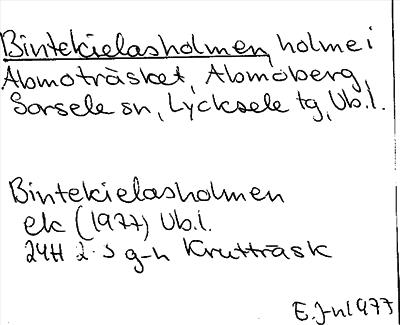 Bintekielasholmen, holme i
Abmoträsket, Abmoberg,
Sorsele sn, Lycksele tg, Vb.l.
Bintekielasholmen
ek (1977) Vb.l.
24H 2-3 g-h Krutträsk
E. J-n 1977